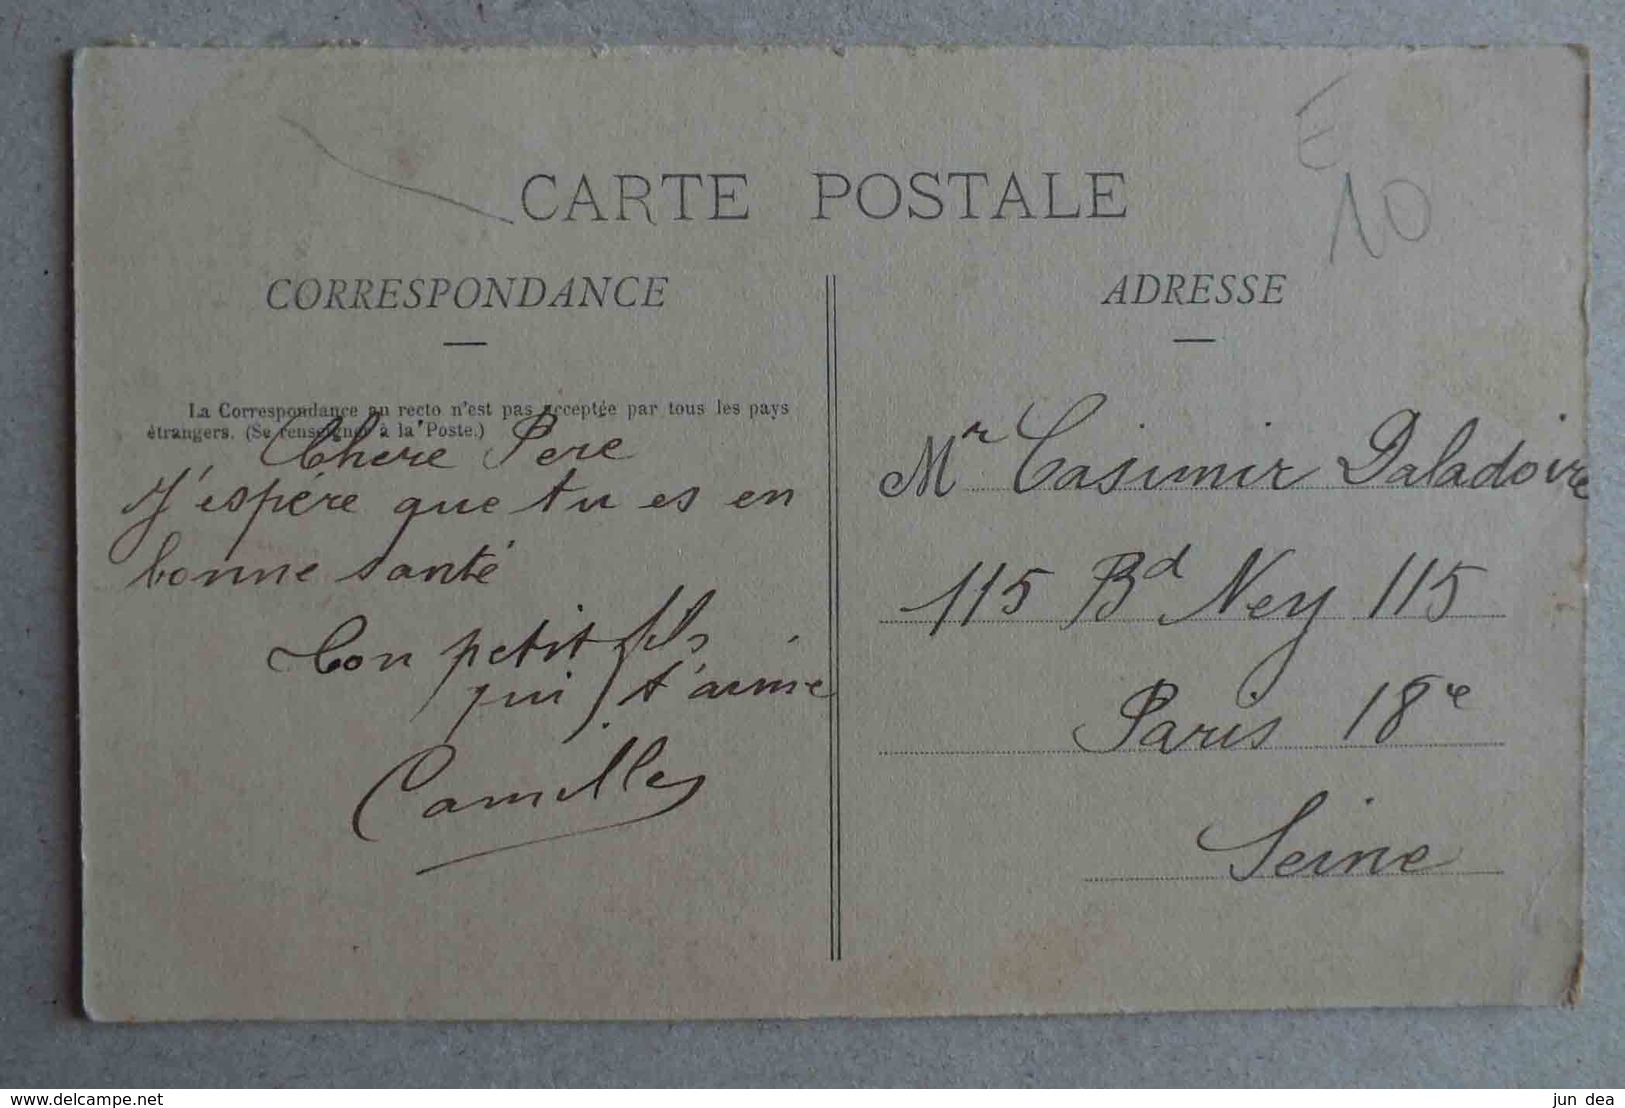 E
10
CARTE POSTALE
CORRESPONDANCE
La Correspondance au recto n'est pas acceptée par tous les pays
étrangers. (Se renseigner à la Poste.)
Chere Pere
J'espére que tu es en
bonne santé
Ton petit fils
qui t'aime
Camille
ADRESSE
Mr Casimir Daladoire
115 Bd Ney 115
Paris 18e
Seine
www.delcampe.net
jun dea